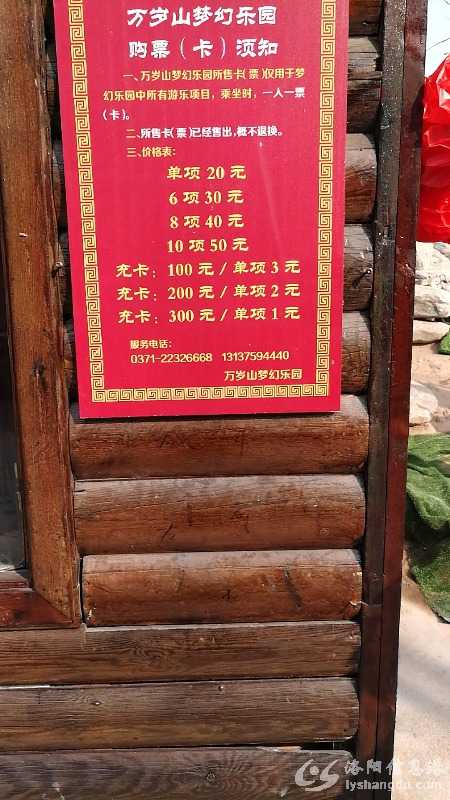 万岁山梦幻乐园
购票（卡）须知
一、万岁山梦幻乐园所售卡(票)仅用于梦
幻乐园中所有游乐项目，乘坐时，一人一票
（卡）。
二、所售卡(票)已经售出，概不退换。
三、价格表：
单项 20 元
6 项 30 元
8 项 40 元
10 项 50 元
充卡：100 元 / 单项 3 元
充卡：200 元 / 单项 2 元
充卡：300 元 / 单项 1 元
服务电话：
0371-22326668 13137594440
万岁山梦幻乐园
洛阳信息港
lyshangdu.com